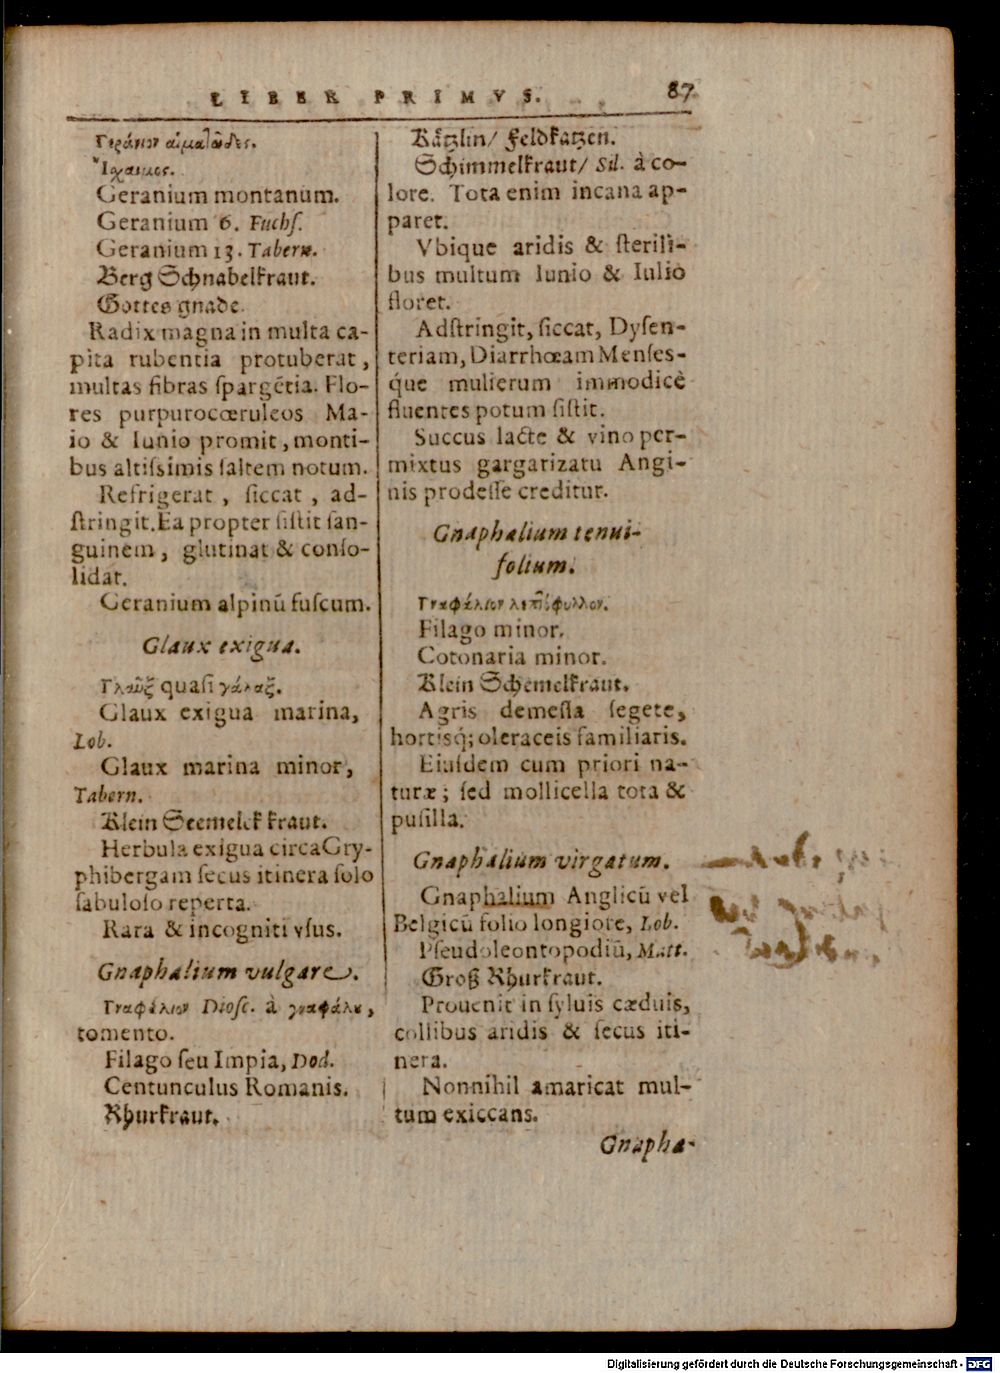 LIBER PRIMVS. 87
Γεράνιον αἱματῶδες.
Ἴχαιμος.
Geranium montanum.
Geranium 6. Fuchſ.
Geranium 13. Tabernæ.
Berg Schnabelkraut.
Gottes gnade.
Radix magna in multa ca-
pita rubentia protuberat,
multas fibras ſpargẽtia. Flo-
res purpurocœruleos Ma-
io & Iunio promit, monti-
bus altiſsimis ſaltem notum.
Refrigerat, ſiccat, ad-
ſtringit. Ea propter ſiſtit ſan-
guinem, glutinat & conſo-
lidat.
Geranium alpinũ fuſcum.
Glaux exigua.
Γλαῦξ quaſi γάλαξ.
Glaux exigua marina,
Lob.
Glaux marina minor,
Tabern.
Klein Seemelck kraut.
Herbula exigua circa Gry-
phibergam ſecus itinera ſolo
ſabuloſo reperta.
Rara & incogniti vſus.
Gnaphalium vulgare.
Γναφάλιον Dioſc. à γναφάλῳ,
tomento.
Filago ſeu Impia, Dod.
Centunculus Romanis.
Rhurkraut.
Kåtzlin/ Feldkatzen.
Schimmelkraut/ Sil. à co-
lore. Tota enim incana ap-
paret.
Vbique aridis & ſterili-
bus multum Iunio & Iulio
floret.
Adſtringit, ſiccat, Dyſen-
teriam, Diarrhœam Menſes-
que mulierum immodicè
fluentes potum ſiſtit.
Succus lacte & vino per-
mixtus gargarizatu Angi-
nis prodeſſe creditur.
Gnaphalium tenui-
folium.
Γναφάλιον λεπτόφυλλον.
Filago minor.
Cotonaria minor.
Klein Schemelkraut.
Agris demeſſa ſegete,
hortisq́; oleraceis familiaris.
Eiuſdem cum priori na-
turæ; ſed mollicella tota &
puſilla.
Gnaphalium virgatum.
Gnaphalium Anglicũ vel
Belgicũ folio longiore, Lob.
Pſeudoleontopodiũ, Matt.
Groß Rhurkraut.
Prouenit in ſyluis cæduis,
collibus aridis & ſecus iti-
nera.
Nonnihil amaricat mul-
tum exiccans.
Gnapha-
Digitalisierung gefördert durch die Deutsche Forschungsgemeinschaft - DFG